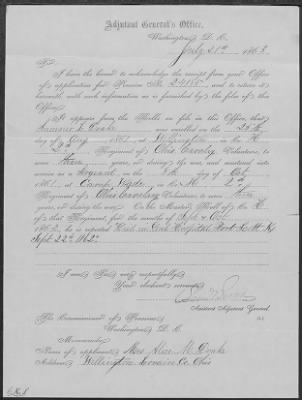 Adjutant General's Office,
Washington, D. C.
July 21st 1863.
Sir:
I have the honor to acknowledge the receipt from your Office
of application for Pension No. 24180, and to return it
herewith, with such information as is furnished by the files of this
Office.
It appears from the Rolls on file in this Office, that
was enrolled on the 29th
day of Aug, 1861, at Wellington in Co. H,
2nd Regiment of Ohio Cavalry Volunteers, to serve
three years, or during the war, and mustered into
service as a Sergeant on the 8th day of Oct,
1861, at Camp, in Co. H, 2nd
Regiment of Ohio Cavalry Volunteers, to serve three
years, or during the war. On the Muster Roll of Co. H
of that Regiment, for the months of Sept & Oct,
1862, he is reported Died in Genl Hospital Fort Scott K
Sept 22nd 1862.
I am, Sir, very respectfully,
Your obedient servant,
Assistant Adjutant General.
The Commissioner of Pensions,
Washington, D. C.
Memoranda:
Name of applicant, Mrs M.
Address, Wellington Lorain Co. Ohio